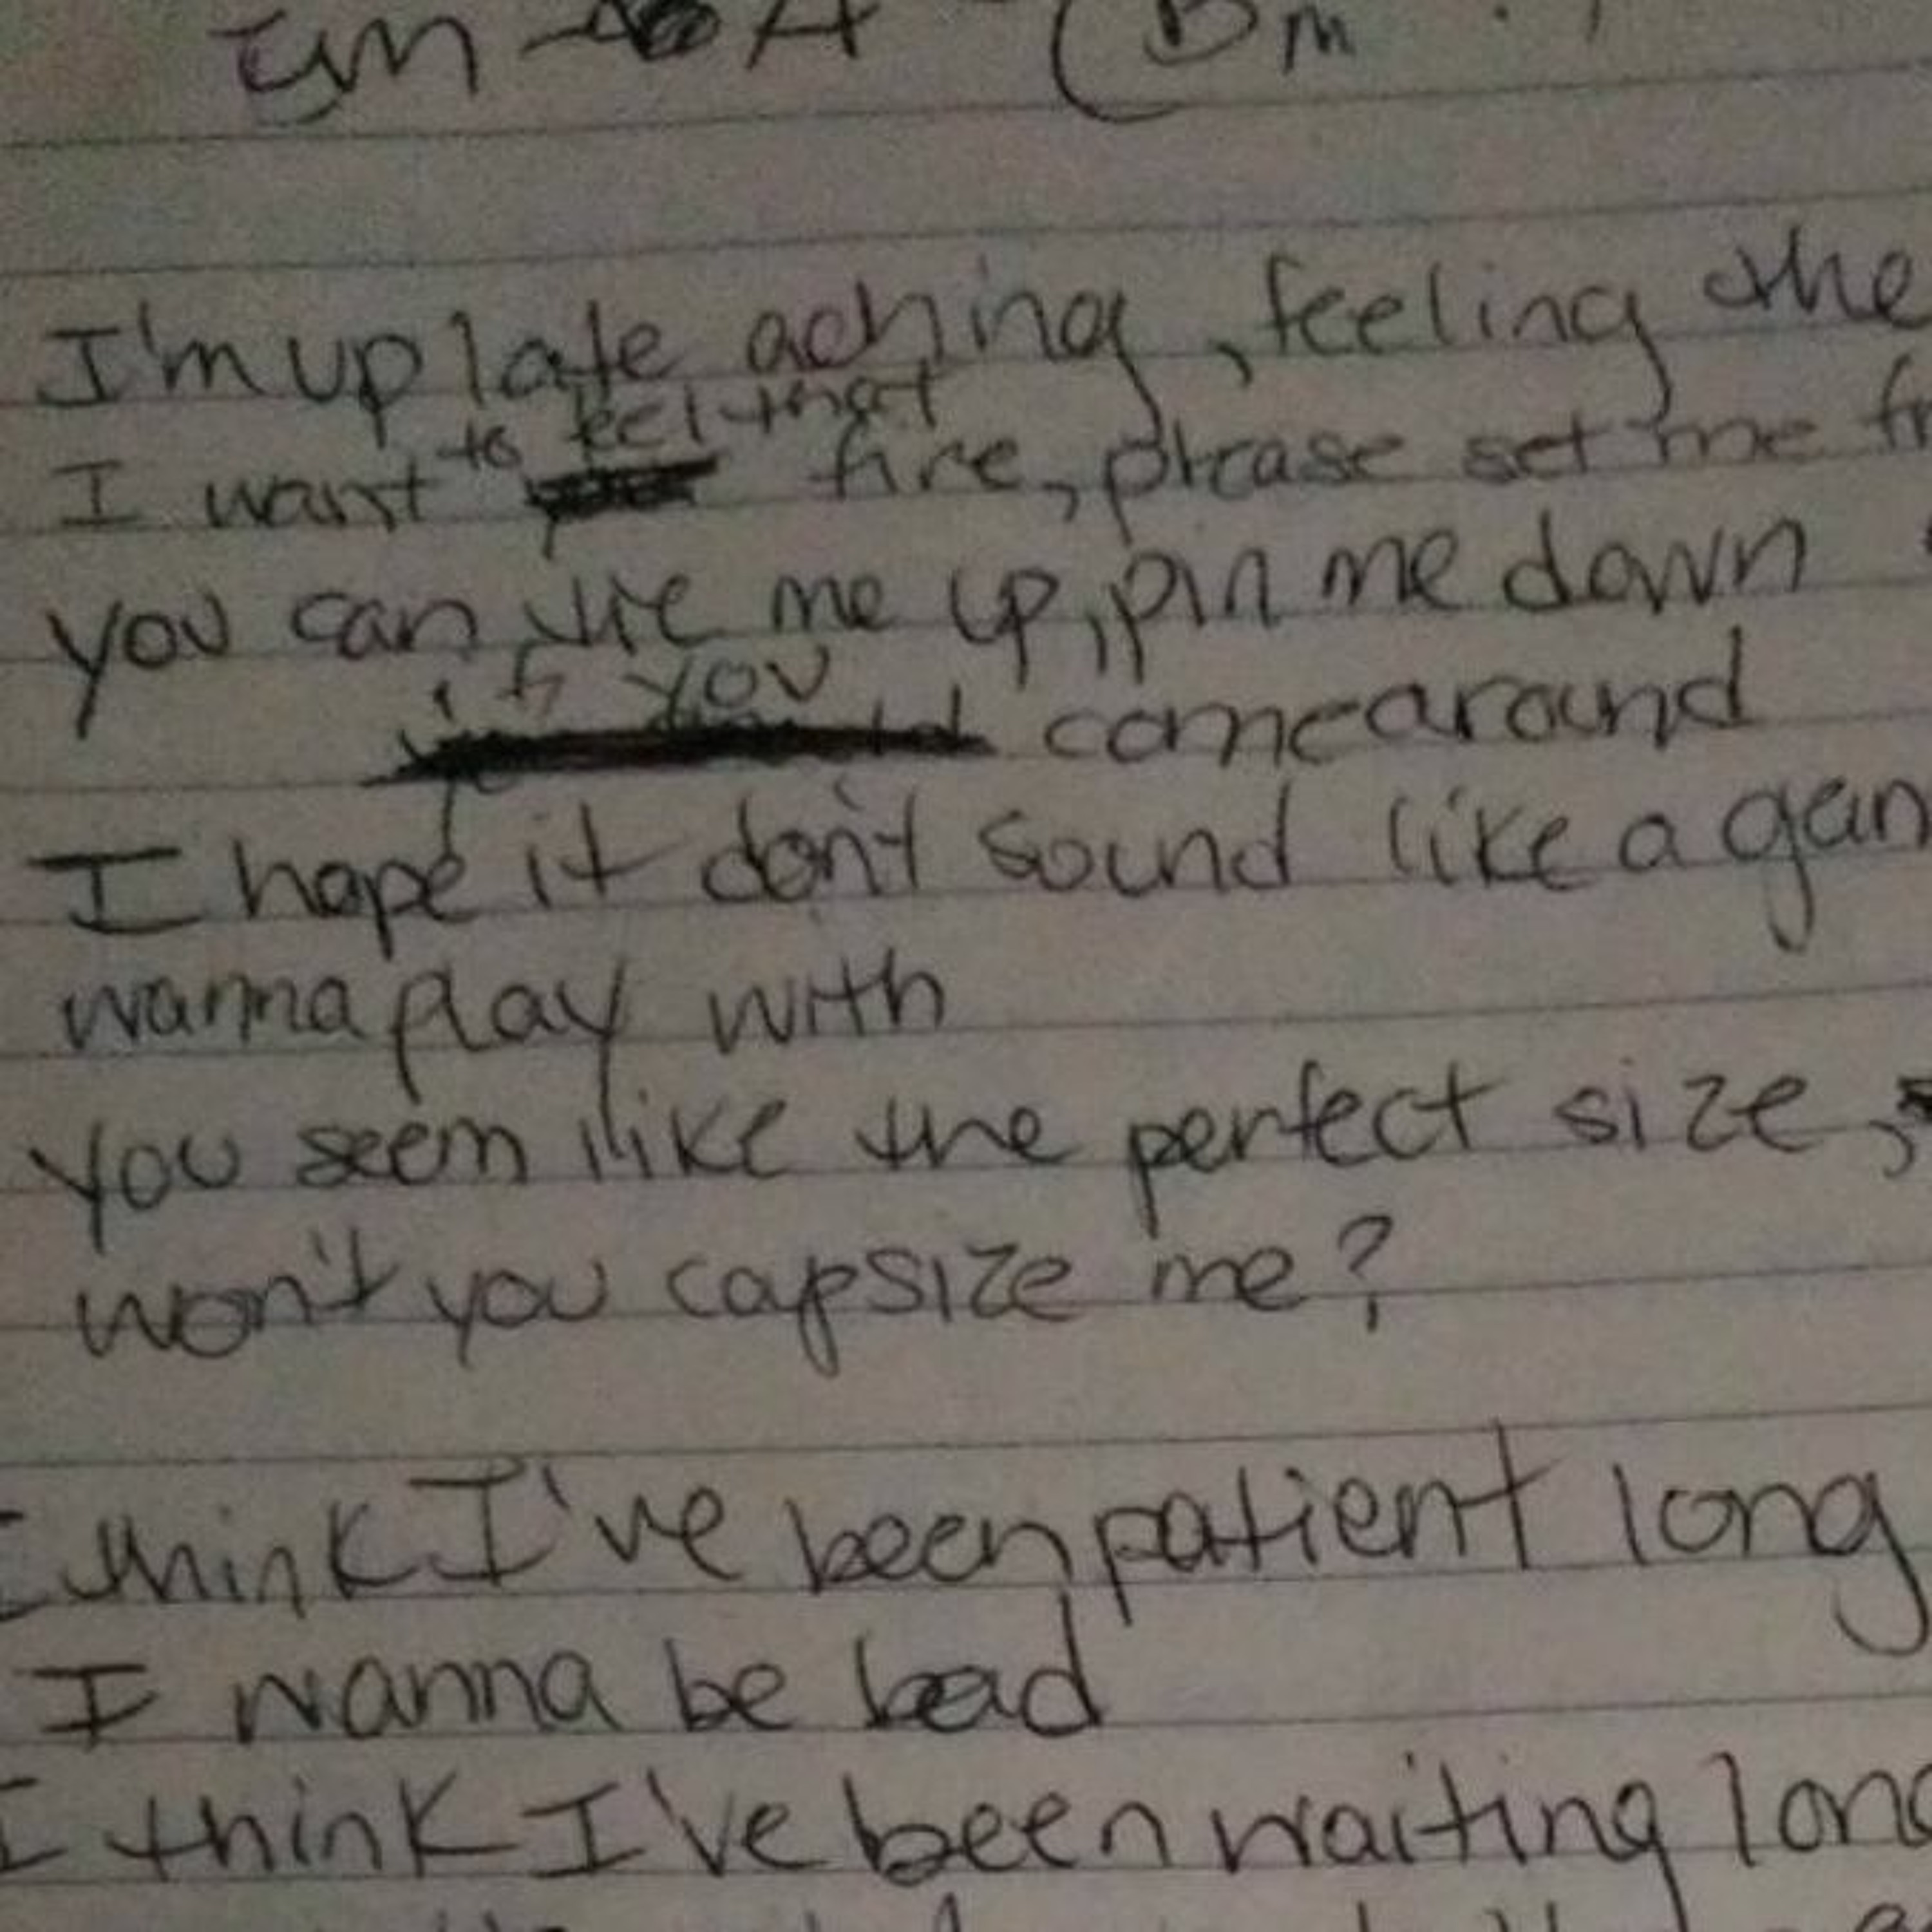 Em A (Bm
I'm up late aching, feeling the
to feel that
I want fire, please set me
you can tie me up, pin me down
if you
come around
I hope it don't sound like a
wanna play with
you seem like the perfect size,
won't you capsize me?
I think I've been patient long
I wanna be bad
I think I've been waiting long